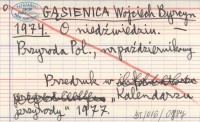 GĄSIENICA Wojciech Byrcyn
1974. O niedźwiedziu.
Przyroda Pol., nr październikowy
Przedruk w
"Kalendarzu
przyrody" 1977.